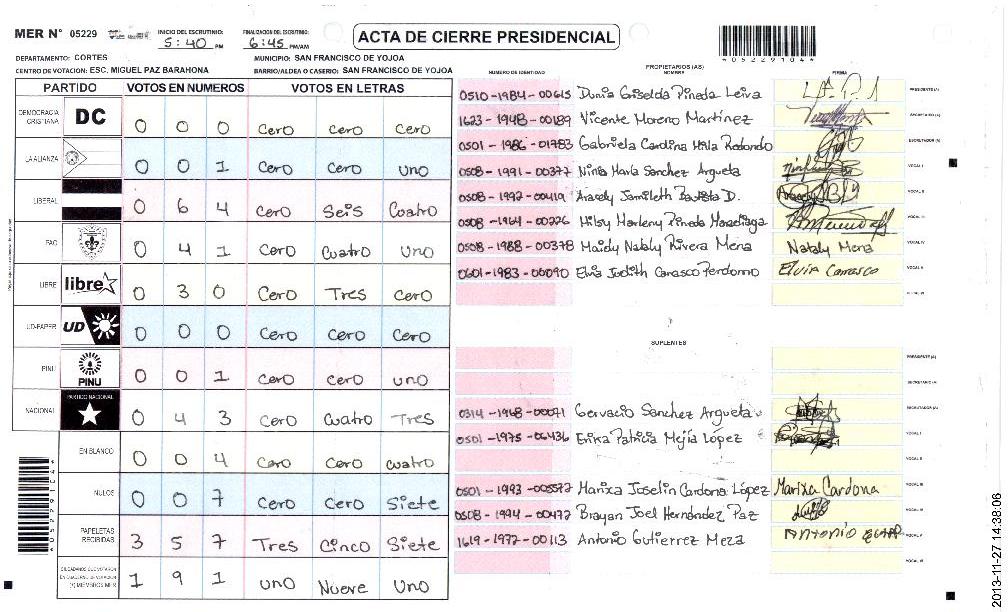 MER N° 05229
INICIO DEL ESCRUTINIO: 5:40 PM
FINALIZACIÓN DEL ESCRUTINIO: 6:45 PM/AM
ACTA DE CIERRE PRESIDENCIAL
*05229104*
DEPARTAMENTO: CORTES
MUNICIPIO: SAN FRANCISCO DE YOJOA
CENTRO DE VOTACION: ESC. MIGUEL PAZ BARAHONA
BARRIO/ALDEA O CASERIO: SAN FRANCISCO DE YOJOA
PARTIDO VOTOS EN NUMEROS VOTOS EN LETRAS
DEMOCRACIA CRISTIANA DC 0 0 0 Cero cero Cero
LA ALIANZA 0 0 1 Cero Cero uno
LIBERAL 0 6 4 Cero Seis Cuatro
PAC 0 4 1 Cero Cuatro Uno
LIBRE libre 0 3 0 Cero Tres cero
UD-FAPER UD 0 0 0 Cero Cero Cero
PINU PINU 0 0 1 Cero cero uno
NACIONAL PARTIDO NACIONAL 0 4 3 Cero Cuatro Tres
EN BLANCO 0 0 4 Cero Cero cuatro
NULOS 0 0 7 Cero Cero Siete
PAPELETAS RECIBIDAS 3 5 7 Tres Cinco Siete
CIUDADANOS QUE VOTARON EN CUADERNO DE VOTACION (+) MIEMBROS MER 1 9 1 uno Nueve Uno
*05229104*
PROPIETARIOS (AS)
NUMERO DE IDENTIDAD NOMBRE FIRMA
0510-1984-00615 Dunia Griselda Pineda Leiva PRESIDENTE (A)
1623-1948-00189 Vicente Moreno Martínez SECRETARIO (A)
0501-1986-01783 Gabriela Carolina Mila Redondo ESCRUTADOR (A)
0508-1991-00377 Ninia María Sanchez Argueta VOCAL I
0508-1992-00419 Aracely Jamileth Bautista D. VOCAL II
0508-1964-00226 Hilsy Marleny Pineda Maradiaga VOCAL III
0508-1988-00378 Maidy Nataly Rivera Mena Nataly Mena VOCAL IV
0601-1983-00090 Elvia Judith Carasco Perdomo Elvia Carrasco VOCAL V
VOCAL VI
SUPLENTES
PRESIDENTE (A)
SECRETARIO (A)
0314-1968-00071 Gervacio Sanchez Argueta ESCRUTADOR (A)
0501-1975-06436 Erika Patricia Mejía López VOCAL I
0501-1993-005572 Marixa Joselin Cardona López Marixa Cardona VOCAL III
0508-1994-00472 Brayan Joel Hernández Paz VOCAL IV
1619-1972-00113 Antonio Gutierrez Meza Antonio VOCAL V
VOCAL VI
2013-11-27 14:38:06